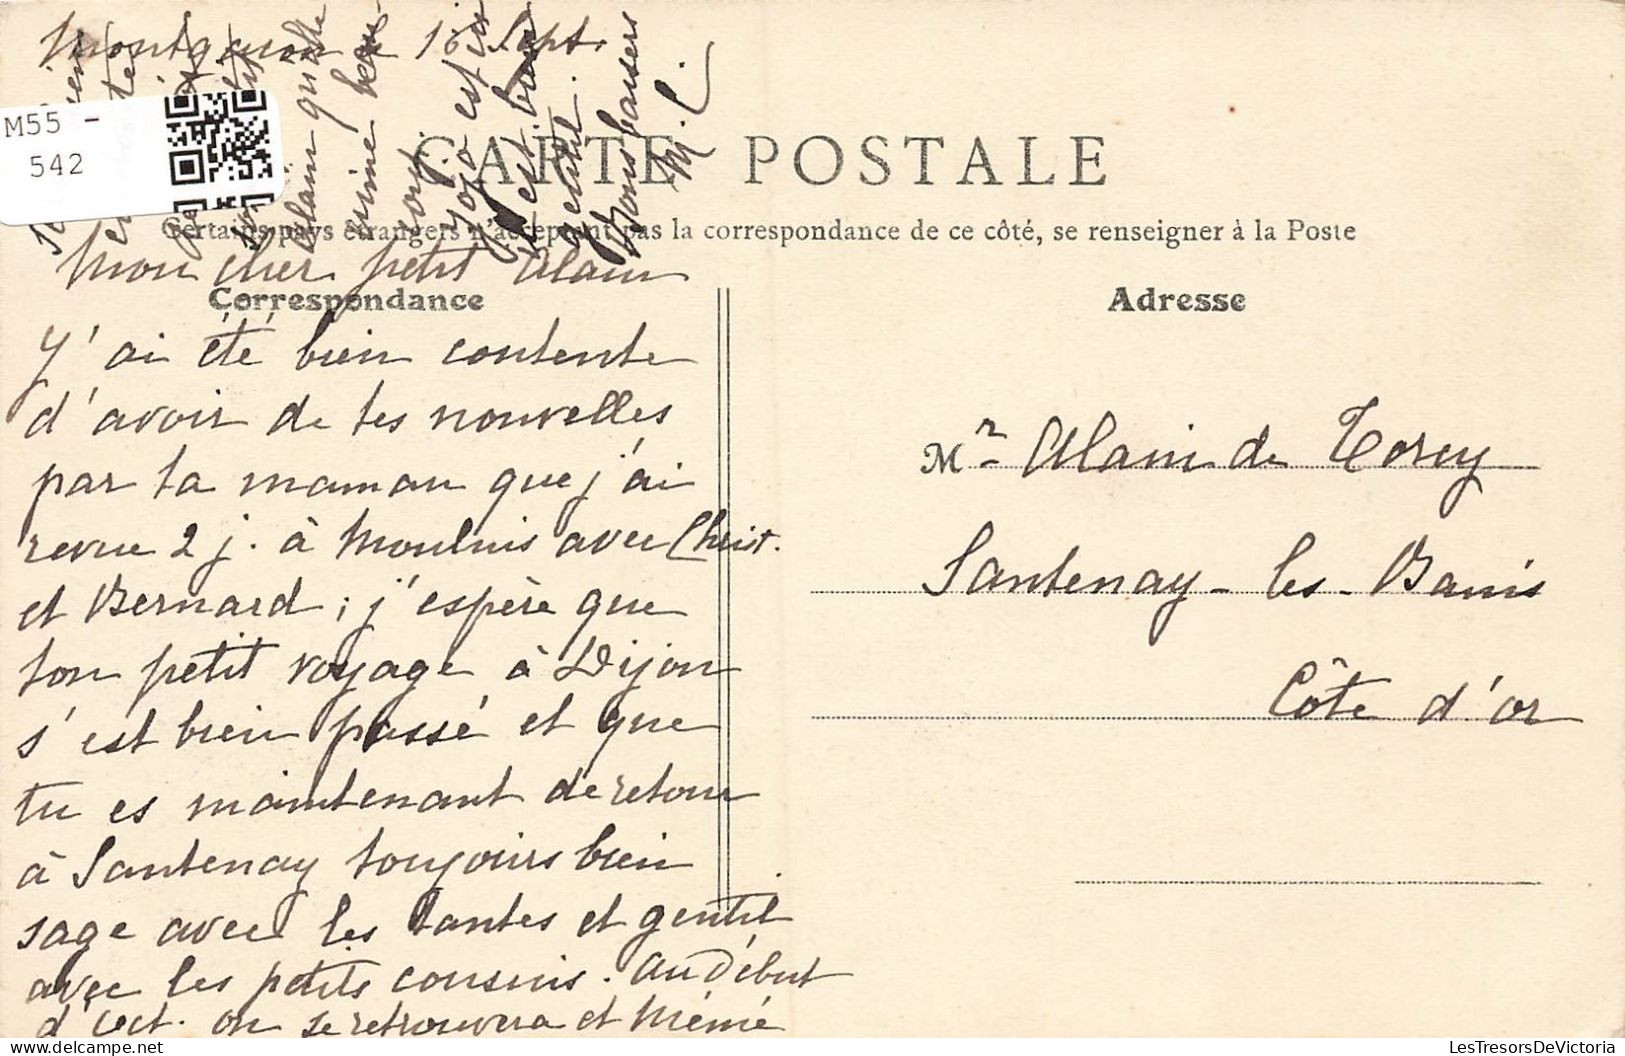 M55 -
542
16 Sept.
CARTE POSTALE
Certains pays étrangers n'acceptent pas la correspondance de ce côté, se renseigner à la Poste
Correspondance
Adresse
Mon cher petit Alain
J'ai été bien contente
d'avoir de tes nouvelles
par ta maman que j'ai
revue 2 j. à Moulins avec Christ.
et Bernard ; j'espère que
ton petit voyage à Dijon
s'est bien passé et que
tu es maintenant de retour
à Santenay toujours bien
sage avec les tantes et gentil
avec les petits cousins. Au début
d'Oct. on se retrouvera et Mémé
Alain qu'elle
aime
Jojo est ici
il est bien
gentil.
Bons baisers
M.
Mr Alain de Torcy
Santenay-les-Bains
Côte d'or
LesTresorsDeVictoria.com